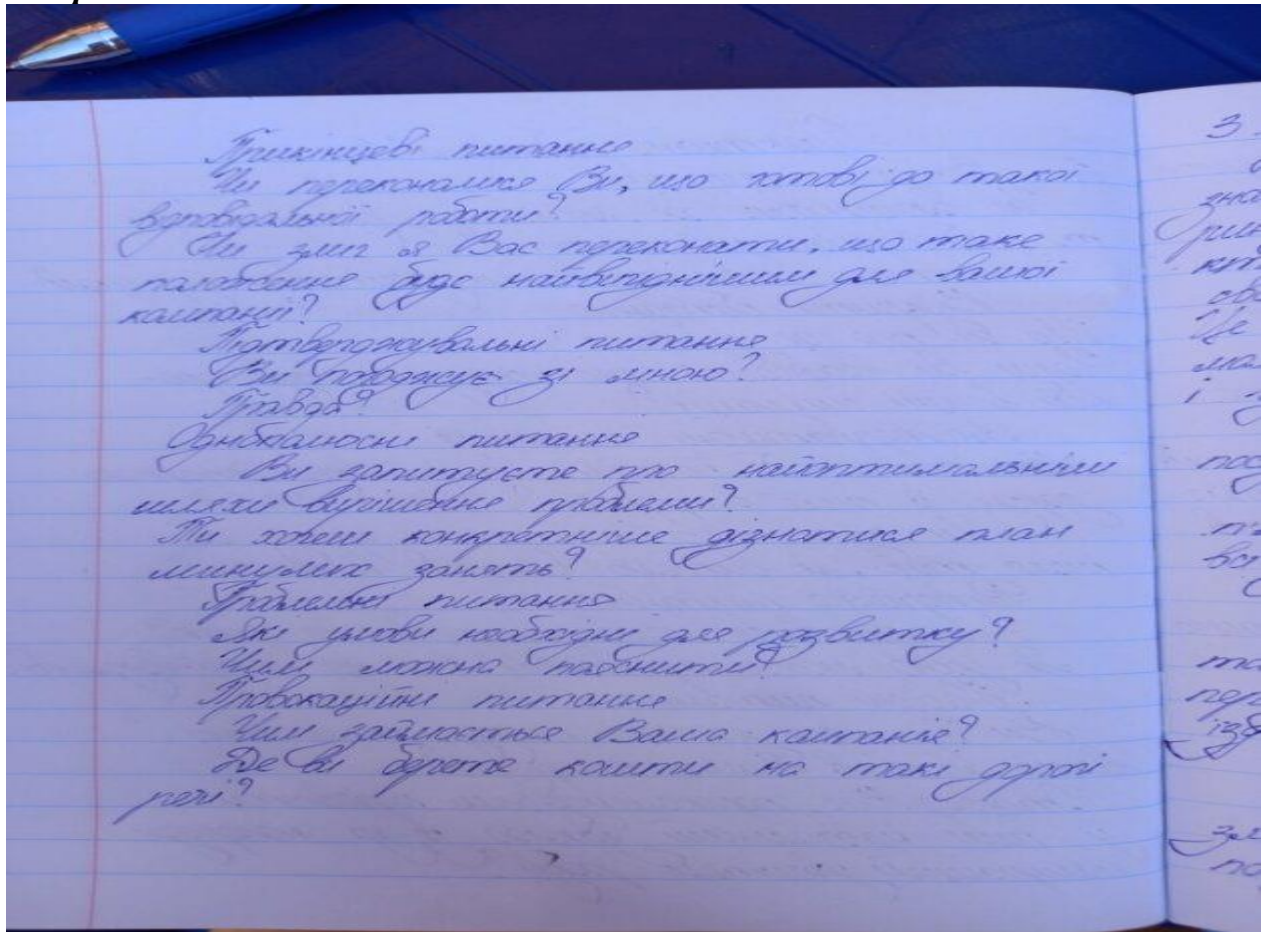 Прикінцеві питання
Чи переконалися Ви, що готові до такої
відповідальної роботи?
Чи зміг я Вас переконати, що таке
положення буде найвигіднішим для вашої
компанії?
Підтверджувальні питання
Ви погоджує зі мною?
Правда?
Однобічності питання
Ви запитуєте про найоптимальніші
шляхи вирішення проблеми?
Ти хочеш конкретніше дізнатися план
минулих занять?
Проблемні питання
Які умови необхідні для розвитку?
Чим можна пояснити?
Провокаційні питання
Чим займається Ваша компанія?
Де ви берете кошти на такі дорогі
речі?
З
Це
і